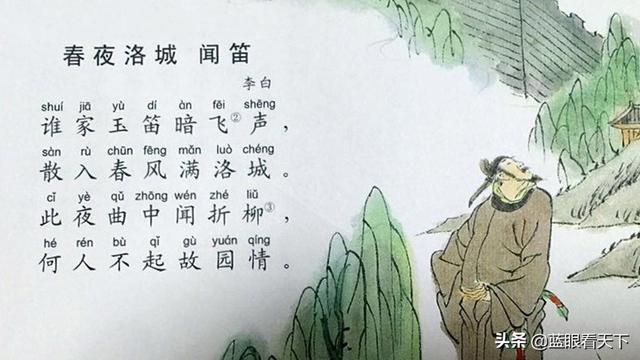 春夜洛城 闻笛
李白
shuí jiā yù dí àn fēi shēng
谁家玉笛暗飞②声，
sàn rù chūn fēng mǎn luò chéng
散入春风满洛城。
cǐ yè qǔ zhōng wén zhé liǔ
此夜曲中闻折柳③，
hé rén bù qǐ gù yuán qíng
何人不起故园情。
头条 @蓝眼看天下